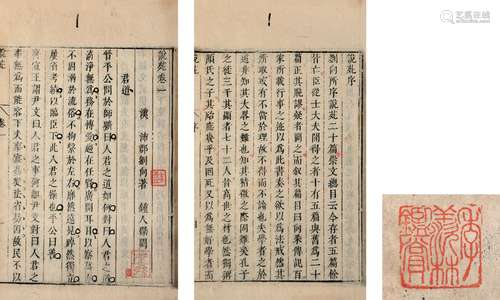 說苑序
劉向所序說苑二十篇崇文總目云今存者五篇餘
皆亡臣從士大夫間得之者十有五篇與舊為二十
篇正其脫謬疑者闕之而敘其篇目曰向采傳記百
家所載行事之迹以為此書奏之欲以為法戒然其
所取或有不當於理故不得而不論也夫學者之於
道非知其大略之難也知其精微之際固難矣孔子
之徒三千其顯者七十二人皆高世之材也然獨稱
顏氏之子其殆庶幾乎及回死又以謂無好學者而
說苑 序
說苑卷一
漢 沛郡劉向著 鍾人傑閱
君道
晉平公問於師曠曰人君之道如何對曰人君之道
清淨無為務在博愛趨在任賢廣開耳目以察萬方
不固溺於流俗不拘繫於左右廓然遠見踔然獨立
屢省考績以臨臣下此人君之操也平公曰善
齊宣王謂尹文曰人君之事何如尹文對曰人君之
事無為而能容下夫事寡易從法省易因故民不以
說苑 卷一